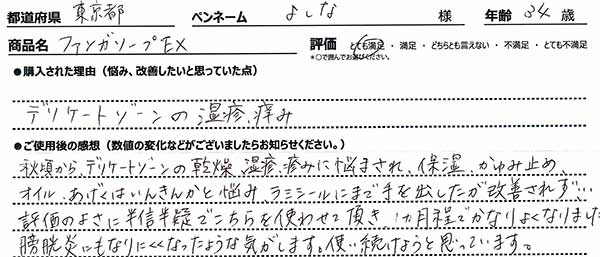 都道府県 東京都 ペンネーム よしな 様 年齢 34 歳
商品名 ファンガソープEX 評価 とても満足 ・ 満足 ・ どちらとも言えない ・ 不満足 ・ とても不満足
*○で囲んでお選びください。
●購入された理由（悩み、改善したいと思っていた点）
デリケートゾーンの湿疹、痒み
●ご使用後の感想（数値の変化などがございましたらお知らせください。）
秋頃から、デリケートゾーンの乾燥、湿疹、痒みに悩まされ、保湿、かゆみ止め、
オイル、あげくはいんきんかと悩み、ラミシールにまで手を出したが改善されず、
評価のよさに半信半疑でこちらを使わせて頂き、1ヵ月程でかなりよくなりました
膀胱炎にもなりにくくなったような気がします。使い続けようと思っています。